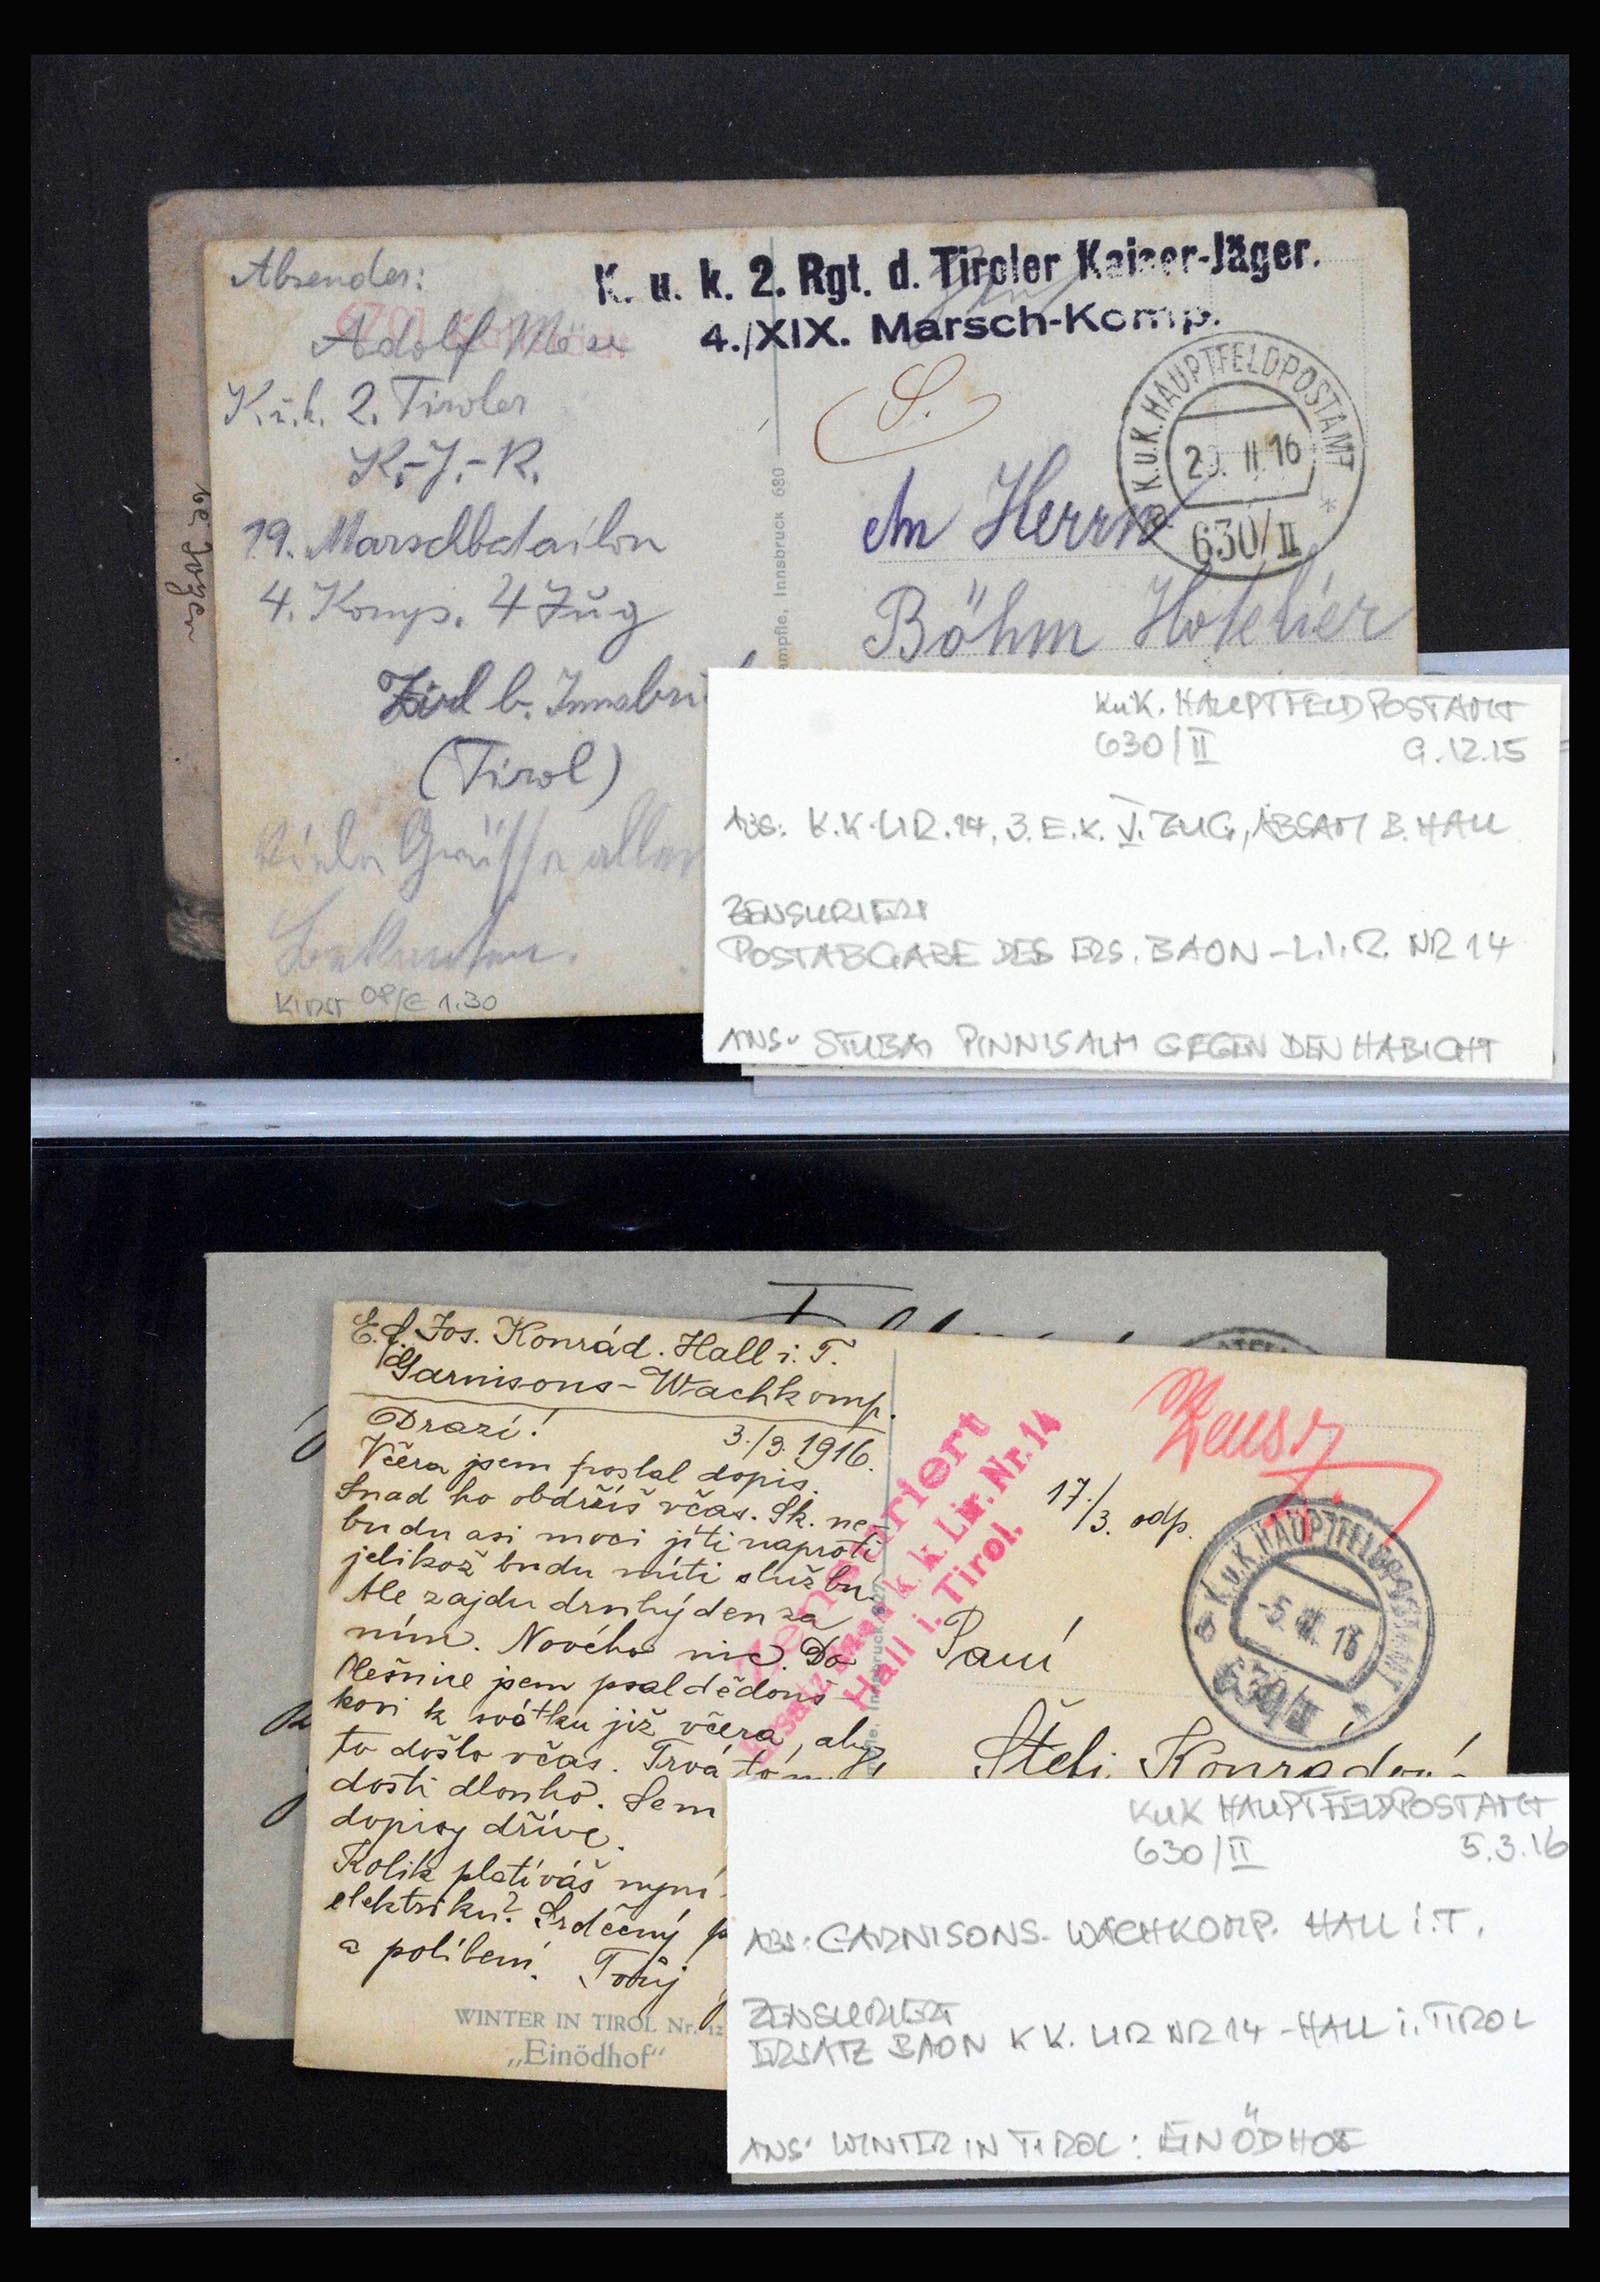 Absender:
K. u. k. 2. Rgt. d. Tiroler Kaiser-Jäger.
4./XIX. Marsch-Komp.
Adolf
K. u. k. 2. Tiroler
K.-J.-R.
19. Marschbatailon
4. Komp. 4 Zug
Zirl b. Innsbru
(Tirol)
Viele Grüsse allen
Bekannten.
KUNST OP/E 1.30
Innsbruck 680
S.
K.U.K. HAUPTFELDPOSTAMT
II. 16
630/II
An Herrn
Böhm Hotelier
KuK. HAUPTFELDPOSTAMT
630/II 9.12.15
ABS: K.K. LIR. 14, 3. E.K. V. ZUG, ABSAM B. HALL
ZENSURIERT
POSTABGABE DES ERS. BAON - L.I.R. NR 14
ANS. STUBAI PINNISALM GEGEN DEN HABICHT
E. f. Jos. Konrád. Hall i. T.
Garnisons-Wachkomp.
Drazí! 3./3. 1916.
Včera jsem poslal dopis.
Snad ho obdržíš včas. Sk. ne-
budu asi moci jíti naproti
jelikož budu míti službu.
Ale zajdu druhý den za
ním. Nového nic. Do
Olešnice jsem psal dědouš-
kovi k svátku již včera, aby
to došlo včas. Trvá to
dosti dlouho. Sem
dopisy dříve.
Kolik platíváš nyní
elektriku? Srdečný p
a políbení. Tvůj
WINTER IN TIROL Nr. 12
„Einödhof“
Zensuriert
Ersatz Baon k. k. Lir. Nr. 14
Hall i. Tirol.
Zens.
17./3. odp.
K.u.K. HAUPTFELDPOSTAMT
-5. III. 16
630/II
Paní
Štefi Konrádov
KuK HAUPTFELDPOSTAMT
630/II 5.3.16
ABS: GARNISONS-WACHKOMP. HALL i.T.
ZENSURIERT
ERSATZ BAON K K. LIR NR 14 - HALL i. TIROL
ANS: WINTER IN TIROL: EINÖDHOF